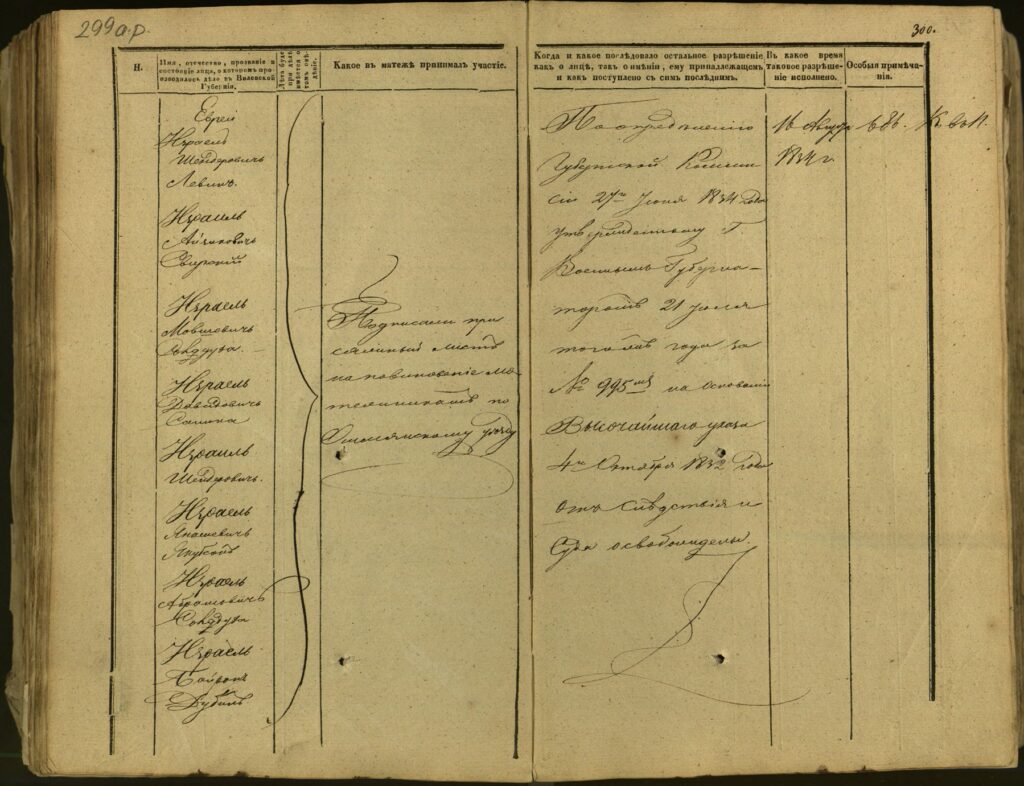 299 а.р.
300.
Н.
Имя, отечество, прозваніе и
состояніе лица, о которомъ про-
изводилось дѣло въ Виленской
Губерніи.
Какое въ мятежѣ принималъ участіе.
Когда и какое послѣдовало остальное разрѣшеніе
какъ о лицѣ, такъ о имѣніи, ему принадлежащемъ
и какъ поступлено съ симъ послѣднимъ.
Въ какое время
таковое разрѣше-
ніе исполнено.
Особыя примѣча-
нія.
Евреи
Израель
Шендеровичъ
Левинъ.
Израиль
Айзиковичъ
Свирскій
Израель
Мовшовичъ
Израель
Давидовичъ
Израиль
Шендеровичъ.
Израель
Израель
Абрамовичъ
Израель
Подписали при
сяжный листъ
на повиновеніе мя-
тежникамъ по
Ошмянскому уѣзду
По опредѣленію
Губернской Коммис
сіи 27го Іюня 1834 года
утвержденному Г.
Военнымъ Губерна-
торомъ 21 Іюля
тогожъ года за
№ 995мъ на основаніи
Высочайшаго указа
4го Октября 1832 года
отъ слѣдствія и
Суда освобождены.
16 Августа
1834 г.